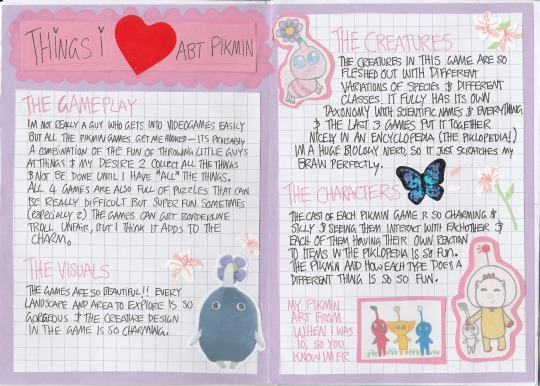 THINGS I
ABT PIKMIN
THE GAMEPLAY
IM NOT REALLY A GUY WHO GETS INTO VIDEOGAMES EASILY
BUT ALL THE PIKMIN GAMES GET ME HOOKED - ITS PROBABLY
A COMBINATION OF THE FUN OF THROWING LITTLE GUYS
AT THINGS & MY DESIRE 2 COLLECT ALL THE THINGS
& NOT BE DONE UNTIL I HAVE *ALL* THE THINGS.
ALL 4 GAMES ARE ALSO FULL OF PUZZLES THAT CAN
BE REALLY DIFFICULT BUT SUPER FUN. SOMETIMES
(especially 2) THE GAMES CAN GET BORDERLINE
TROLL UNFAIR, BUT I THINK IT ADDS TO THE
CHARM.
THE VISUALS
THE GAMES ARE SO BEAUTIFUL!! EVERY
LANDSCAPE AND AREA TO EXPLORE IS SO
GORGEOUS & THE CREATURE DESIGN
IN THE GAME IS SO CHARMING.
THE CREATURES
THE CREATURES IN THIS GAME ARE SO
FLESHED OUT WITH DIFFERENT
VARIATIONS OF SPECIES & DIFFERENT
CLASSES. IT FULLY HAS ITS OWN
TAXONOMY WITH SCIENTIFIC NAMES & EVERYTHING
& THE LAST 3 GAMES PUT IT TOGETHER
NICELY IN AN ENCYCLOPEDIA (THE PIKLOPEDIA!)
IM A HUGE BIOLOGY NERD, SO IT JUST SCRATCHES MY
BRAIN PERFECTLY.
THE CHARACTERS
THE CAST OF EACH PIKMIN GAME IS SO CHARMING &
SILLY & SEEING THEM INTERACT WITH EACHOTHER &
EACH OF THEM HAVING THEIR OWN REACTION
TO ITEMS IN THE PIKLOPEDIA IS SO FUN.
THE PIKMIN AND HOW EACH TYPE DOES A
DIFFERENT THING IS SO SO FUN.
MY PIKMIN
ART FROM
WHEN I WAS
10, SO YOU
KNOW IM FR